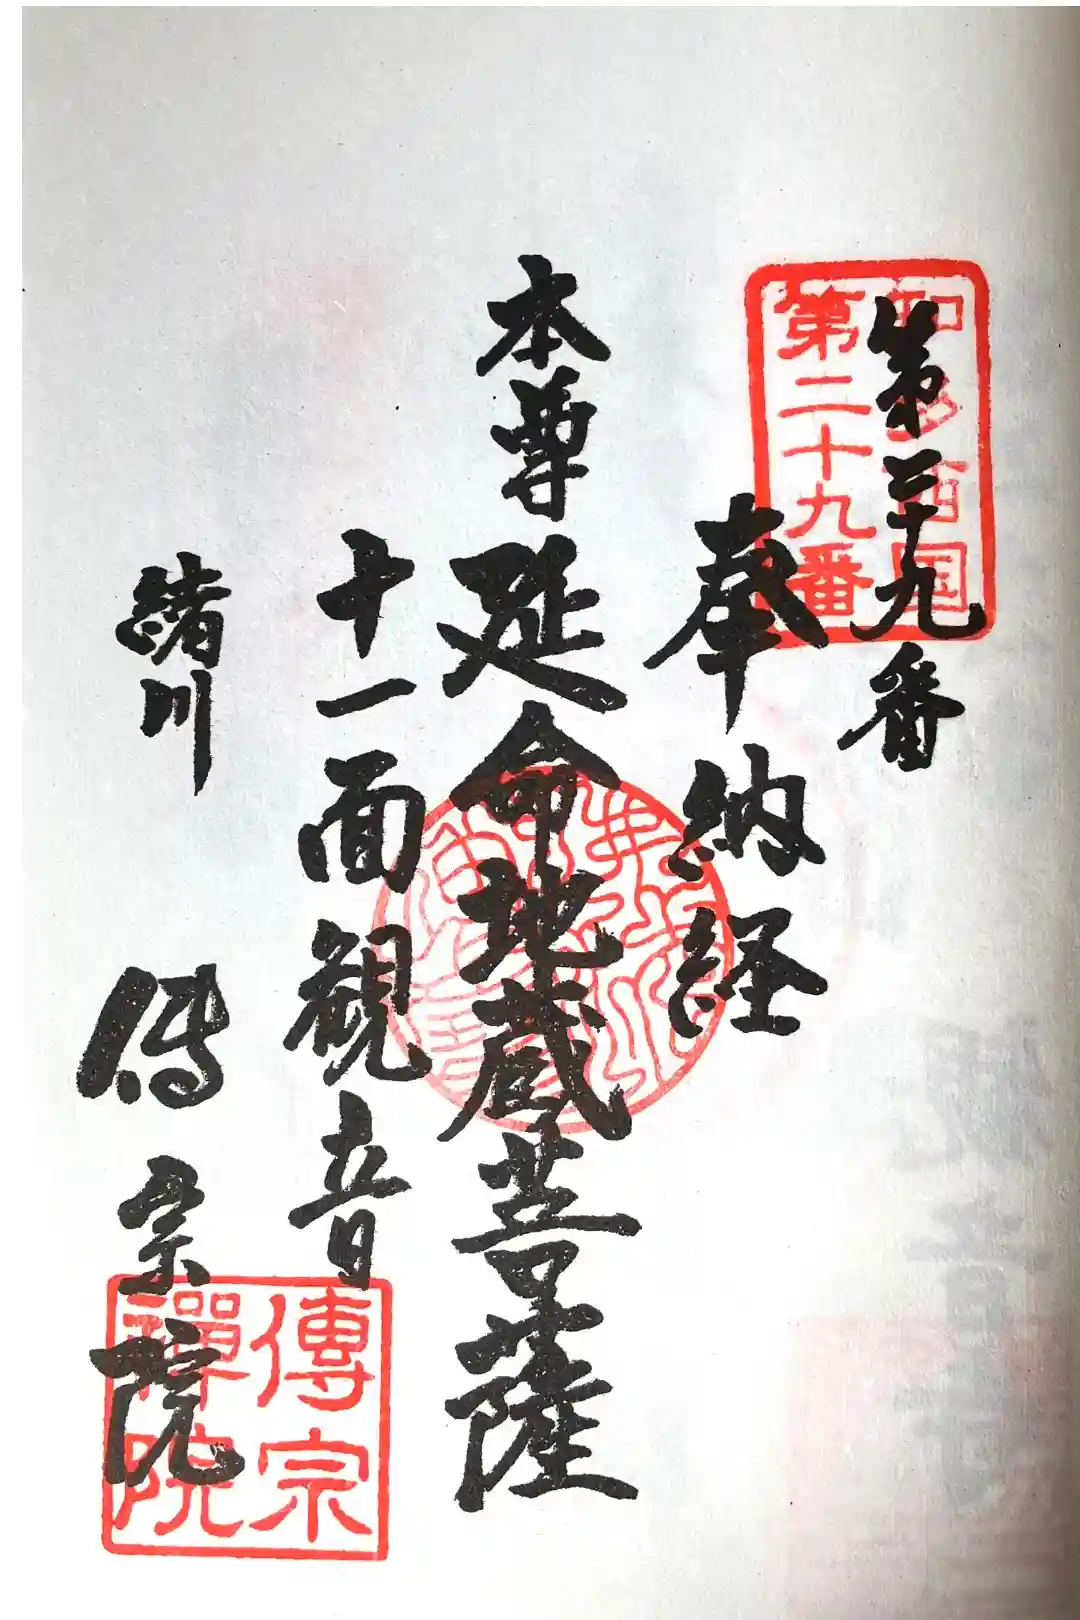 第二十九番
知多西国
第二十九番
奉納経
本尊 延命地蔵菩薩
十一面観音
緒川 傳宗院
傳宗
禪院